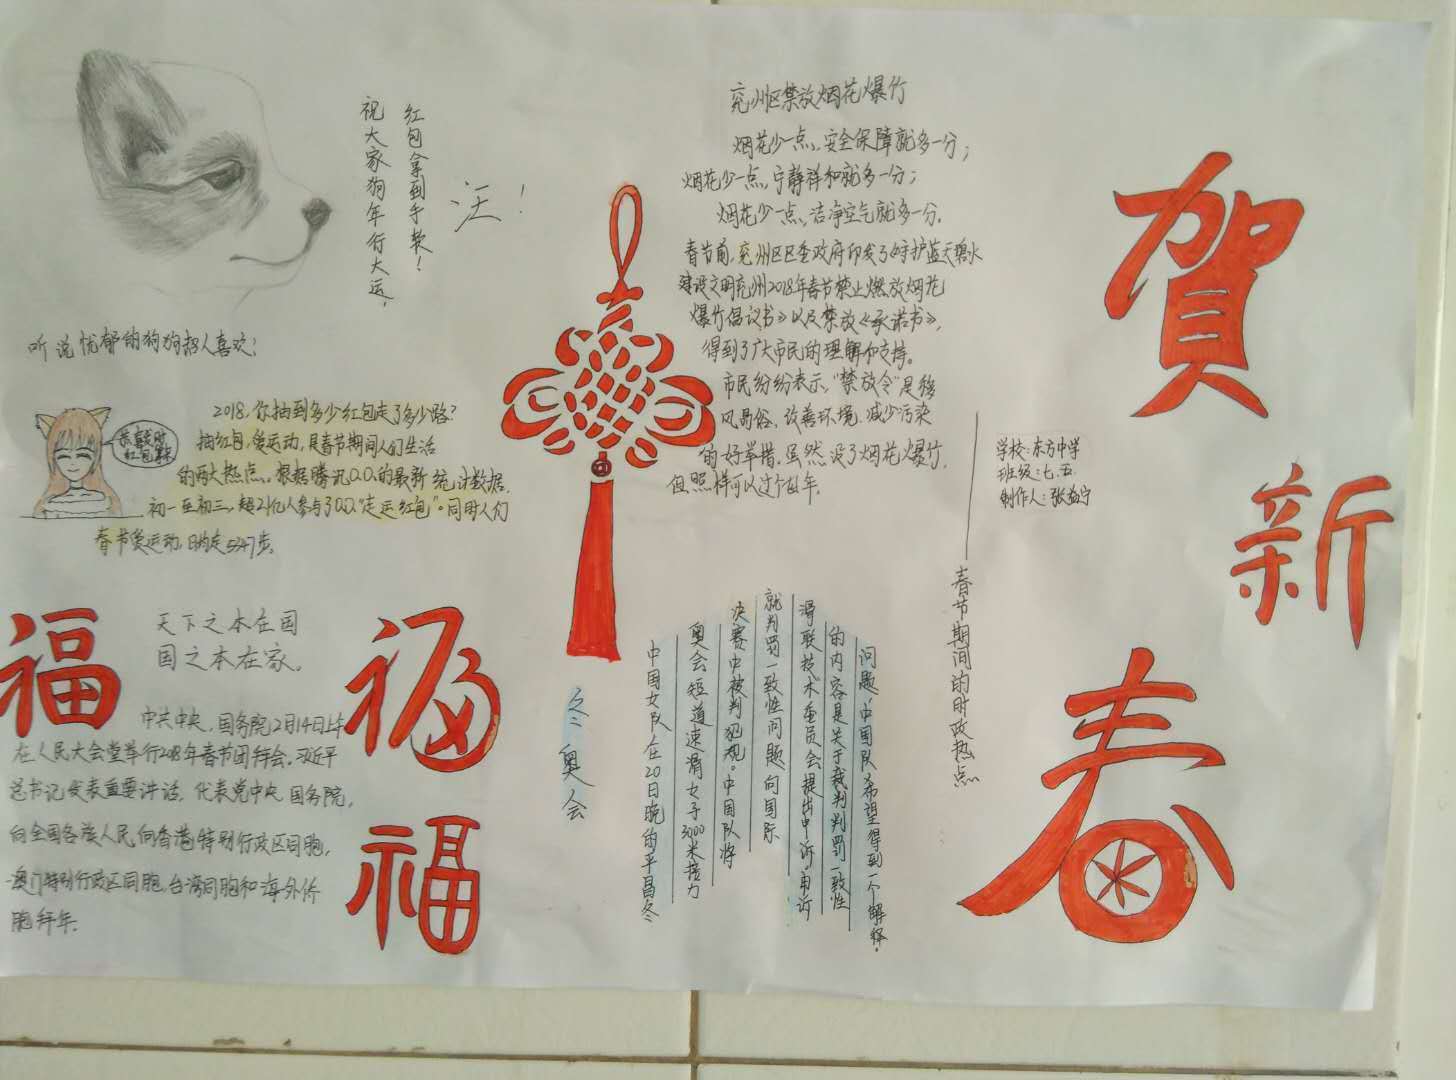 祝大家狗年行大运，
红包拿到手软！
汪！
听说忧郁的狗狗招人喜欢！
恭喜发财
红包拿来
2018，你抽到多少红包走了多少路？
抽红包，爱运动，是春节期间人们生活
的两大热点。根据腾讯QQ的最新统计数据，
初一至初三，超2.1亿人参与了QQ“走运红包”。同时人们
春节爱运动，日均走5347步。
福
天下之本在国
国之本在家。
福
中共中央，国务院2月14日上午
在人民大会堂举行2018年春节团拜会，习近平
总书记发表重要讲话，代表党中央 国务院，
向全国各族人民，向香港特别行政区同胞，
澳门特别行政区同胞，台湾同胞和海外侨
胞拜年。
福
兖州区禁放烟花爆竹
烟花少一点，安全保障就多一分；
烟花少一点，宁静祥和就多一分；
烟花少一点，洁净空气就多一分。
春节前，兖州区区委政府印发了《守护蓝天碧水
建设文明兖州2018年春节禁止燃放烟花
爆竹倡议书》以及禁放《承诺书》，
得到了广大市民的理解和支持。
市民纷纷表示，“禁放令”是移
风易俗、改善环境、减少污染
的好举措，虽然没了烟花爆竹，
但照样可以过个旺年。
冬奥会
中国女队在20日晚的平昌冬
奥会短道速滑女子3000米接力
决赛中被判犯规。中国队将
就判罚一致性问题向国际
滑联技术委员会提出申诉 申诉
的内容是关于裁判判罚一致性
问题，中国队希望得到一个解释。
——春节期间的时政热点
学校：东方中学
班级：七.五
制作人：张益宁
贺
新
春